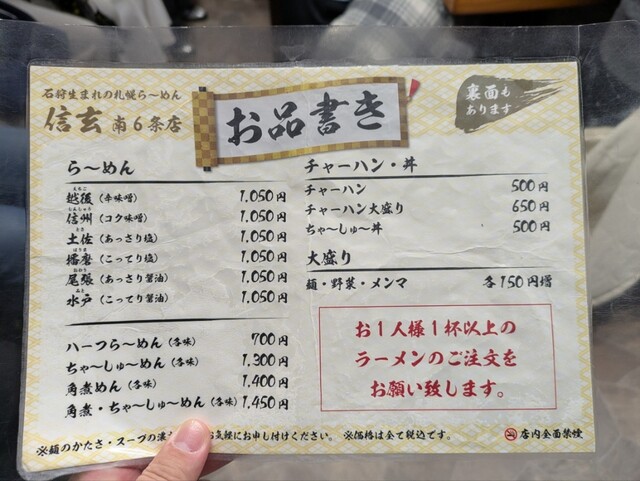 石狩生まれの札幌ら〜めん
信玄 南6条店
お品書き
裏面も
あります
ら〜めん
越後（辛味噌） 1,050円
信州（コク味噌） 1,050円
土佐（あっさり塩） 1,050円
播磨（こってり塩） 1,050円
尾張（あっさり醤油） 1,050円
水戸（こってり醤油） 1,050円
ハーフら〜めん（各味） 700円
ちゃ〜しゅ〜めん（各味） 1,300円
角煮めん（各味） 1,400円
角煮・ちゃ〜しゅ〜めん（各味） 1,450円
チャーハン・丼
チャーハン 500円
チャーハン大盛り 650円
ちゃ〜しゅ〜丼 500円
大盛り
麺・野菜・メンマ 各150円増
お1人様1杯以上の
ラーメンのご注文を
お願い致します。
※麺のかたさ・スープの濃 お気軽にお申し付けください。 ※価格は全て税込です。
店内全面禁煙